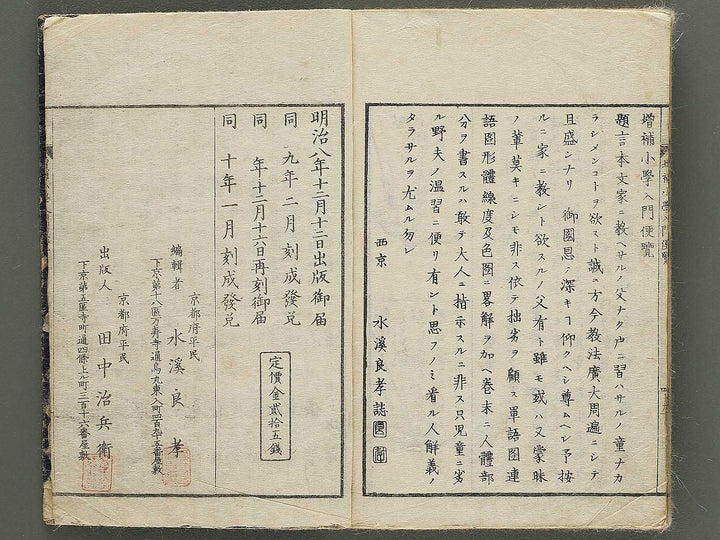 増補小學入門便覧
題言本文家ニ教ヘサルノ父ナク戸ニ習ハサルノ童ナカ
ラシメンコトヲ欲スト誠ニ方今教法廣大周遍ニシテ
且盛ンナリ 御國恩ノ深キヿ仰クヘシ尊ムヘシ予按
ルニ家ニ教ント欲スルノ父有ト雖モ或ハ又蒙昧
ノ輩莫キニシモ非ス依テ拙劣ヲ顧ス單語圖連
語圖形體線度及色圖ニ畧解ヲ加ヘ巻末ニ人體部
分ヲ書スルハ敢テ大人ニ指示スルニ非ス只児童ニ劣
ル野夫ノ温習ニ便リ有ント思フノミ看ル人解義ノ
タラサルヲ尤ムル勿レ
西京 水溪良孝誌
明治八年十二月十二日出版御届
同 九年二月刻成發兌
同 年十二月十六日再刻御届
同 十年一月刻成發兌
定價金貳拾五錢
京都府平民
編輯者 水溪良孝
下京第十八區万壽寺通烏丸東入町四百卆五番屋敷
京都府平民
出版人 田中治兵衛
下京第五區寺町通四條上ル町三百十六番屋敷